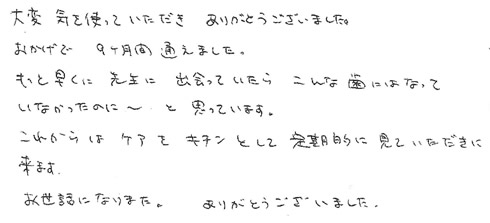 大変 気を使っていただき ありがとうございました。
おかげで 9ヶ月間 通えました。
もっと早くに 先生に 出会っていたら こんな歯にはなって
いなかったのに〜 と 思っています。
これからは ケアを キチンとして 定期的に 見ていただきに
来ます.
お世話になりました。 ありがとうございました.